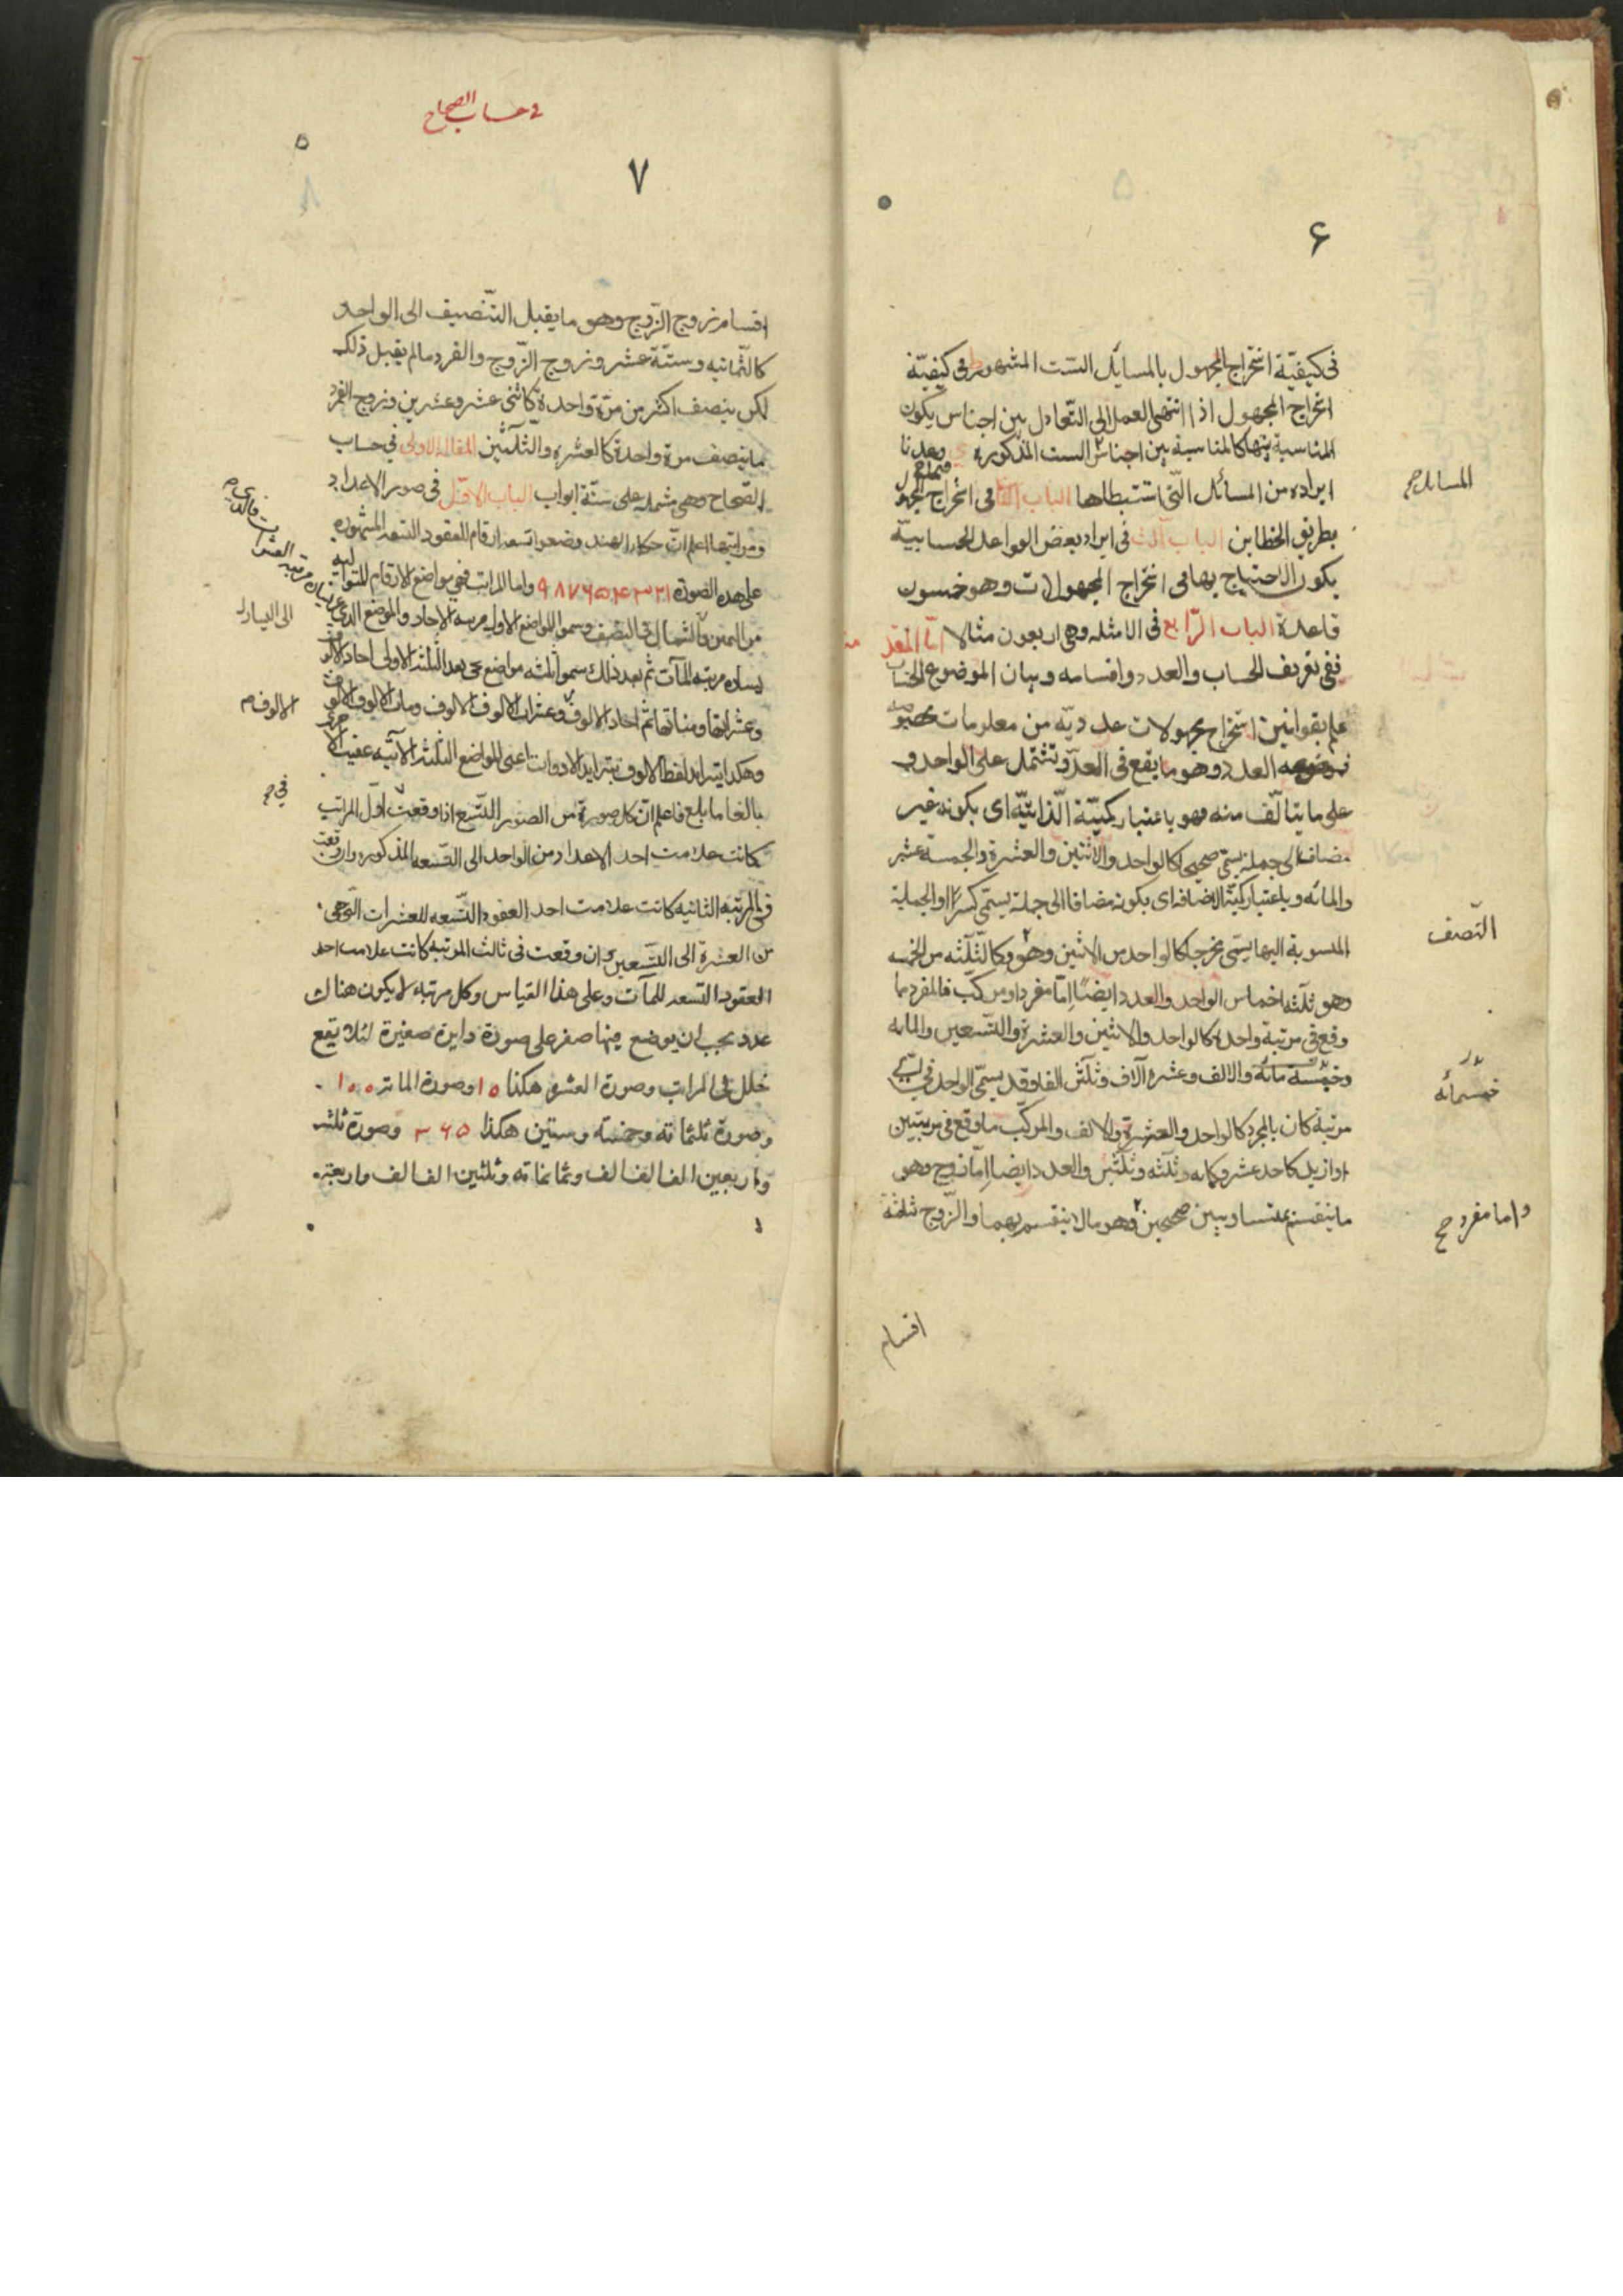 ۶
فى كيفيّة استخراج المجهول بالمسايل الستّ المشهورة فى كيفيّة
استخراج المجهول اذا انتهى العمل الى التّعادل بين اجناس يكون
المناسبة بينها كالمناسبة بين اجناس الست المذكورة وهذا
المسايل ح
ايراده من المسائل التى استنبطها الباب فى استخراج المجهول
بطريق الخطاين الباب الثالث فى ايراد بعض القواعد الحسابيّة
يكون الاحتياج بها فى استخراج المجهولات وهو خمسون
قاعدة الباب الرّابع فى الامثله وهى اربعون مثالا امّا المقد مه
ففى تعريف الحساب والعدد واقسامه وبيان الموضوع الحساب
علم بقوانين استخراج مجهولات عدديّه من معلومات مخصوصه
وموضوعه العدد وهو ما يقع فى العدّ وتشتمل على الواحد و
على ما يتالّف منه وهو باعتبار كميّته الذّاتيّه اى بكونه غير
مضاف الى جملة يسمّى صحيحا كالواحد والاثنين والعشرة والخمسة عشر
والمائه وباعتبار كميّته الاضافه اى بكونه مضافا الى جملة يسمّى كسرًا والجملة
النّصف
المنسوبة اليها يسمّى مخرجا كالواحد من الاثنين وهو وكالثّلثه من الخمسه
وهو ثلثه اخماس الواحد والعدد ايضًا امّا مفرد او مركّب فالمفرد ما
وقع فى مرتبة واحدة كالواحد والاثنين والعشرة والتّسعين والمائه
خمسمائه
وخمسة مائه والالف وعشره آلاف وثلثين الفا وقد يسمّى الواحد فى اىّ
مرتبة كان بالمجرد كالواحد والعشرة والالف والمركّب ما وقع فى مرتبتين
او ازيد كاحد عشر وكمايه وثلثه وثلثين والعدد ايضا امّا زوج وهو
واما مفرد ح
ما ينقسم بمتساويين صحيحين وهو ما لا ينقسم بهما والزّوج ثلثة
اقسام
فى حساب الصحاح
۵
۷
اقسام زوج الزّوج وهو ما يقبل التّنصيف الى الواحد
كالثّمانيه وستّة عشر وزوج الزّوج والفرد ما لم يقبل ذلك
لكن ينصف اكثر من مرّة واحدة كاثنى عشر وعشرين وزوج الفرد
ما ينصف مرة واحدة كالعشره والثّلثين المقاله الاولى فى حساب
الصّحاح وهى مشتمله على ستّة ابواب الباب الاوّل فى صور الاعداد
ومراتبها اعلم انّ حكماء الهند وضعوا تسعه ارقام للعقود التسعه المشهوره
على هذه الصّورة ۱ ۲ ۳ ۴ ۵ ۶ ۷ ۸ ۹ واما المراتب فهى مواضع الارقام المتواليه
الى اليسار
من اليمين والشمال وسموا المواضع الاول مرتبه الاحاد والموضع الذى
يساره مرتبه المآت ثم بعد ذلك سموا ثلثه مواضع بعد الثّلثه الاولى احاد الالوف
الالوف م
وعشراتها ومئاتها ثمّ احاد الالوف وعشرات الالوف الالوف ومات الالوف الالوف
وهكذا يتزايد لفظ الالوف بتزايد الادوات اعنى المواضع الثلثه الآتيه عقيب الاخرى
فى ح
بالغا ما بلغ فاعلم انّ كل صورة من الصور التّسع اذا وقعت اوّل المراتب
كانت علامت احد الاعداد من الواحد الى التّسعه المذكوره وان وقعت
فى المرتبه الثانيه كانت علامت احد العقود التّسعه للعشرات التّى هى
من العشرة الى التّسعين وان وقعت فى ثالث المرتبه كانت علامت احد
العقود التسعه للمآت وعلى هذا القياس وكل مرتبة لا يكون هناك
عدد يجب ان يوضع فيها صفر على صورة دايرة صغيرة لئلا يقع
خلل فى المراتب وصورة العشره هكذا ۱۰ وصورة المائه ۱۰۰
وصورة ثلثمائه وخمسه وستين هكذا ۳۶۵ وصورة ثلثه
واربعين الف الف الف وثمانمائه وثلثين الف الف واربعة